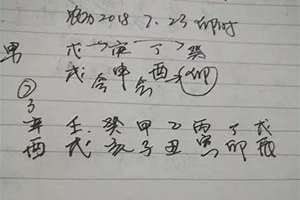 农历2018 7.23 卯时
男 戊 庚 丁 癸
戌 会 申 会 酉 冲 卯
3
辛 壬 癸 甲 乙 丙 丁 戊
酉 戌 亥 子 丑 寅 卯 辰